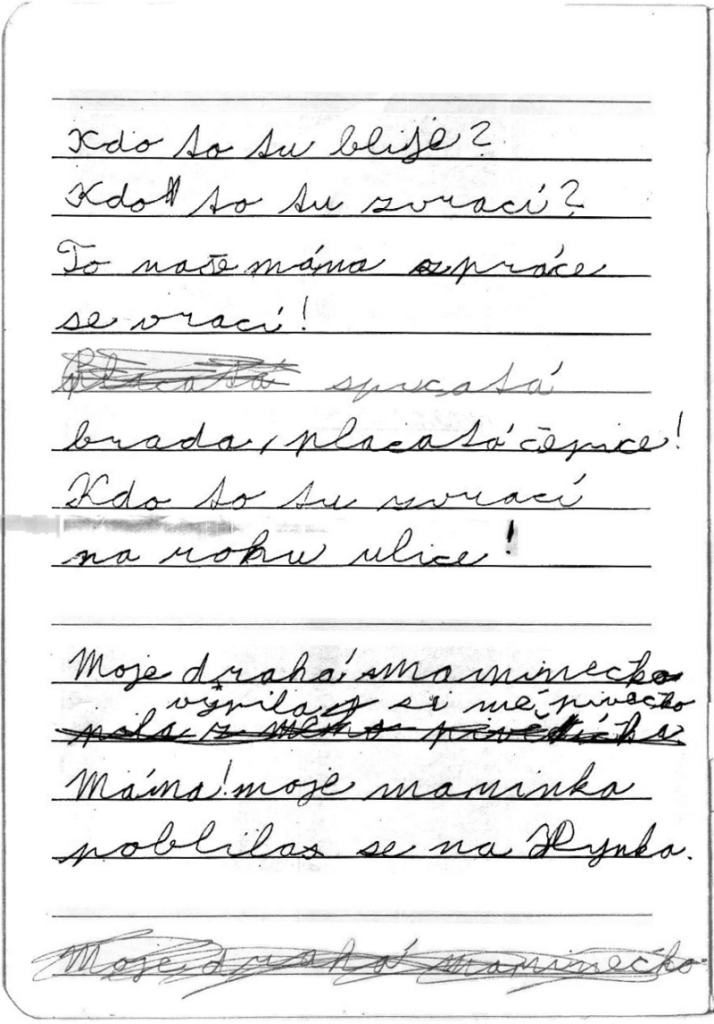 Kdo to tu blije?
Kdo to tu zvrací?
To naše máma z práce
se vrací!
placatá spicatá
brada, placatá čepice!
Kdo to tu zvrací
na rohu ulice!
Moje drahá maminecko
výpilas si mé pivecko
pila z meho pivečka
Máma! moje maminka
poblilas se na Hynka.
Moje drahá maminečko